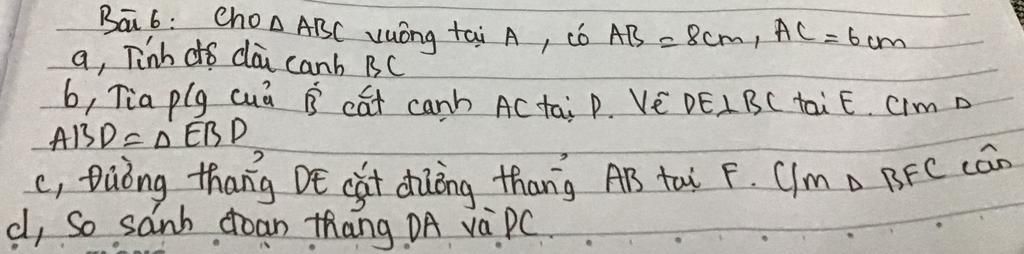 Bài 6: Cho Δ ABC vuông tại A, có AB = 8cm, AC = 6cm
a, Tính độ dài cạnh BC
b, Tia p/g của B̂ cắt cạnh AC tại D. Vẽ DE⊥BC tại E. C/m Δ
ABD = Δ EBD
c, Đường thẳng DE cắt đường thẳng AB tại F. C/m Δ BFC cân
d, So sánh đoạn thẳng DA và DC.